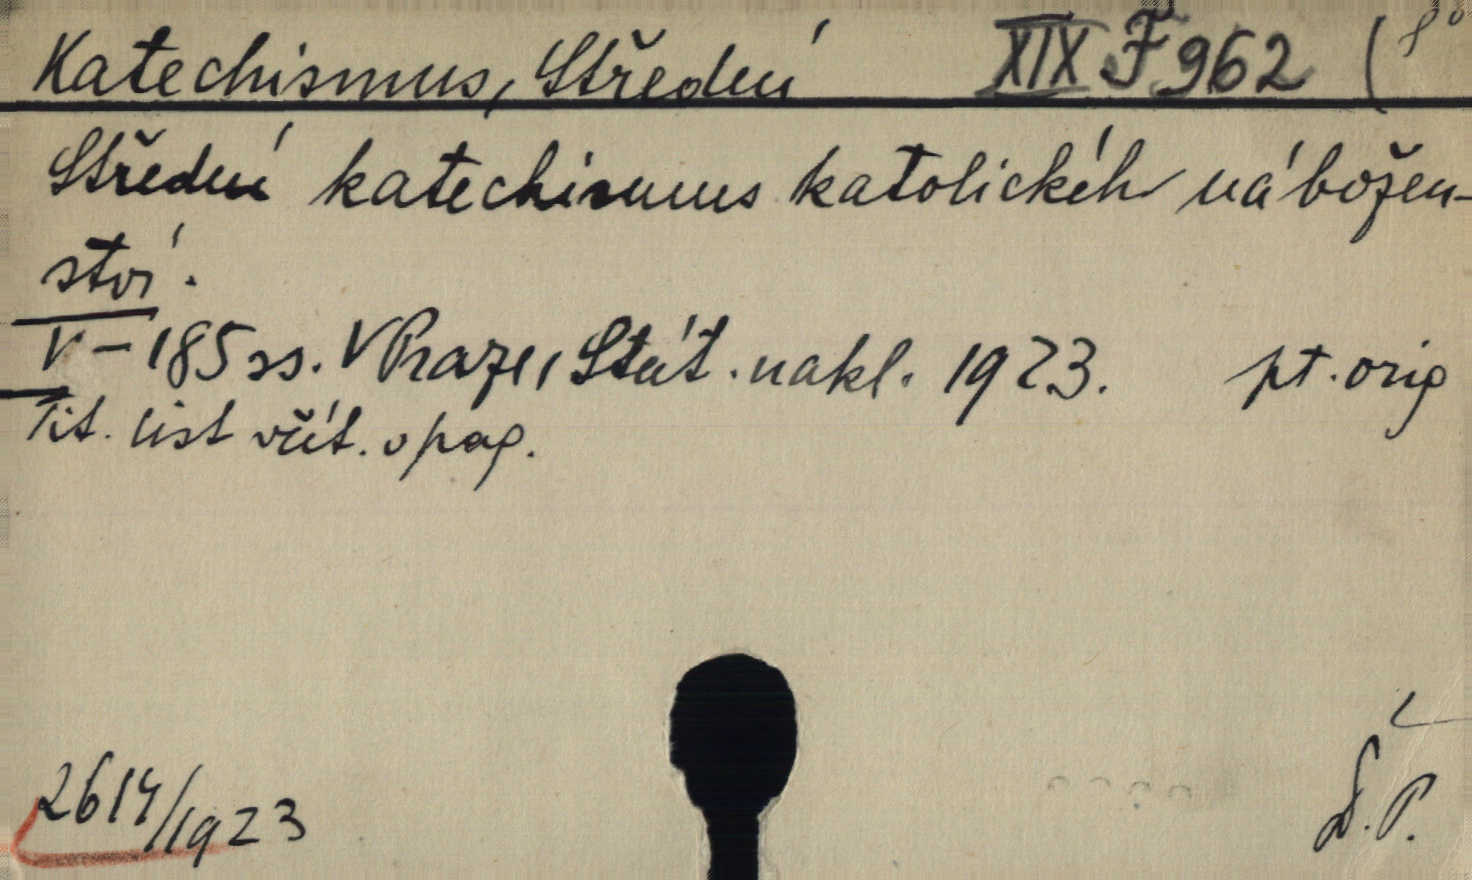 Katechismus, Střední XIX F 962 (8°
Střední katechismus katolickéh nábožen-
ství.
V-185 ss. V Praze, Stát. nakl. 1923. pt. orig
Tit. list včít. v pag.
2614/1923
D.P.